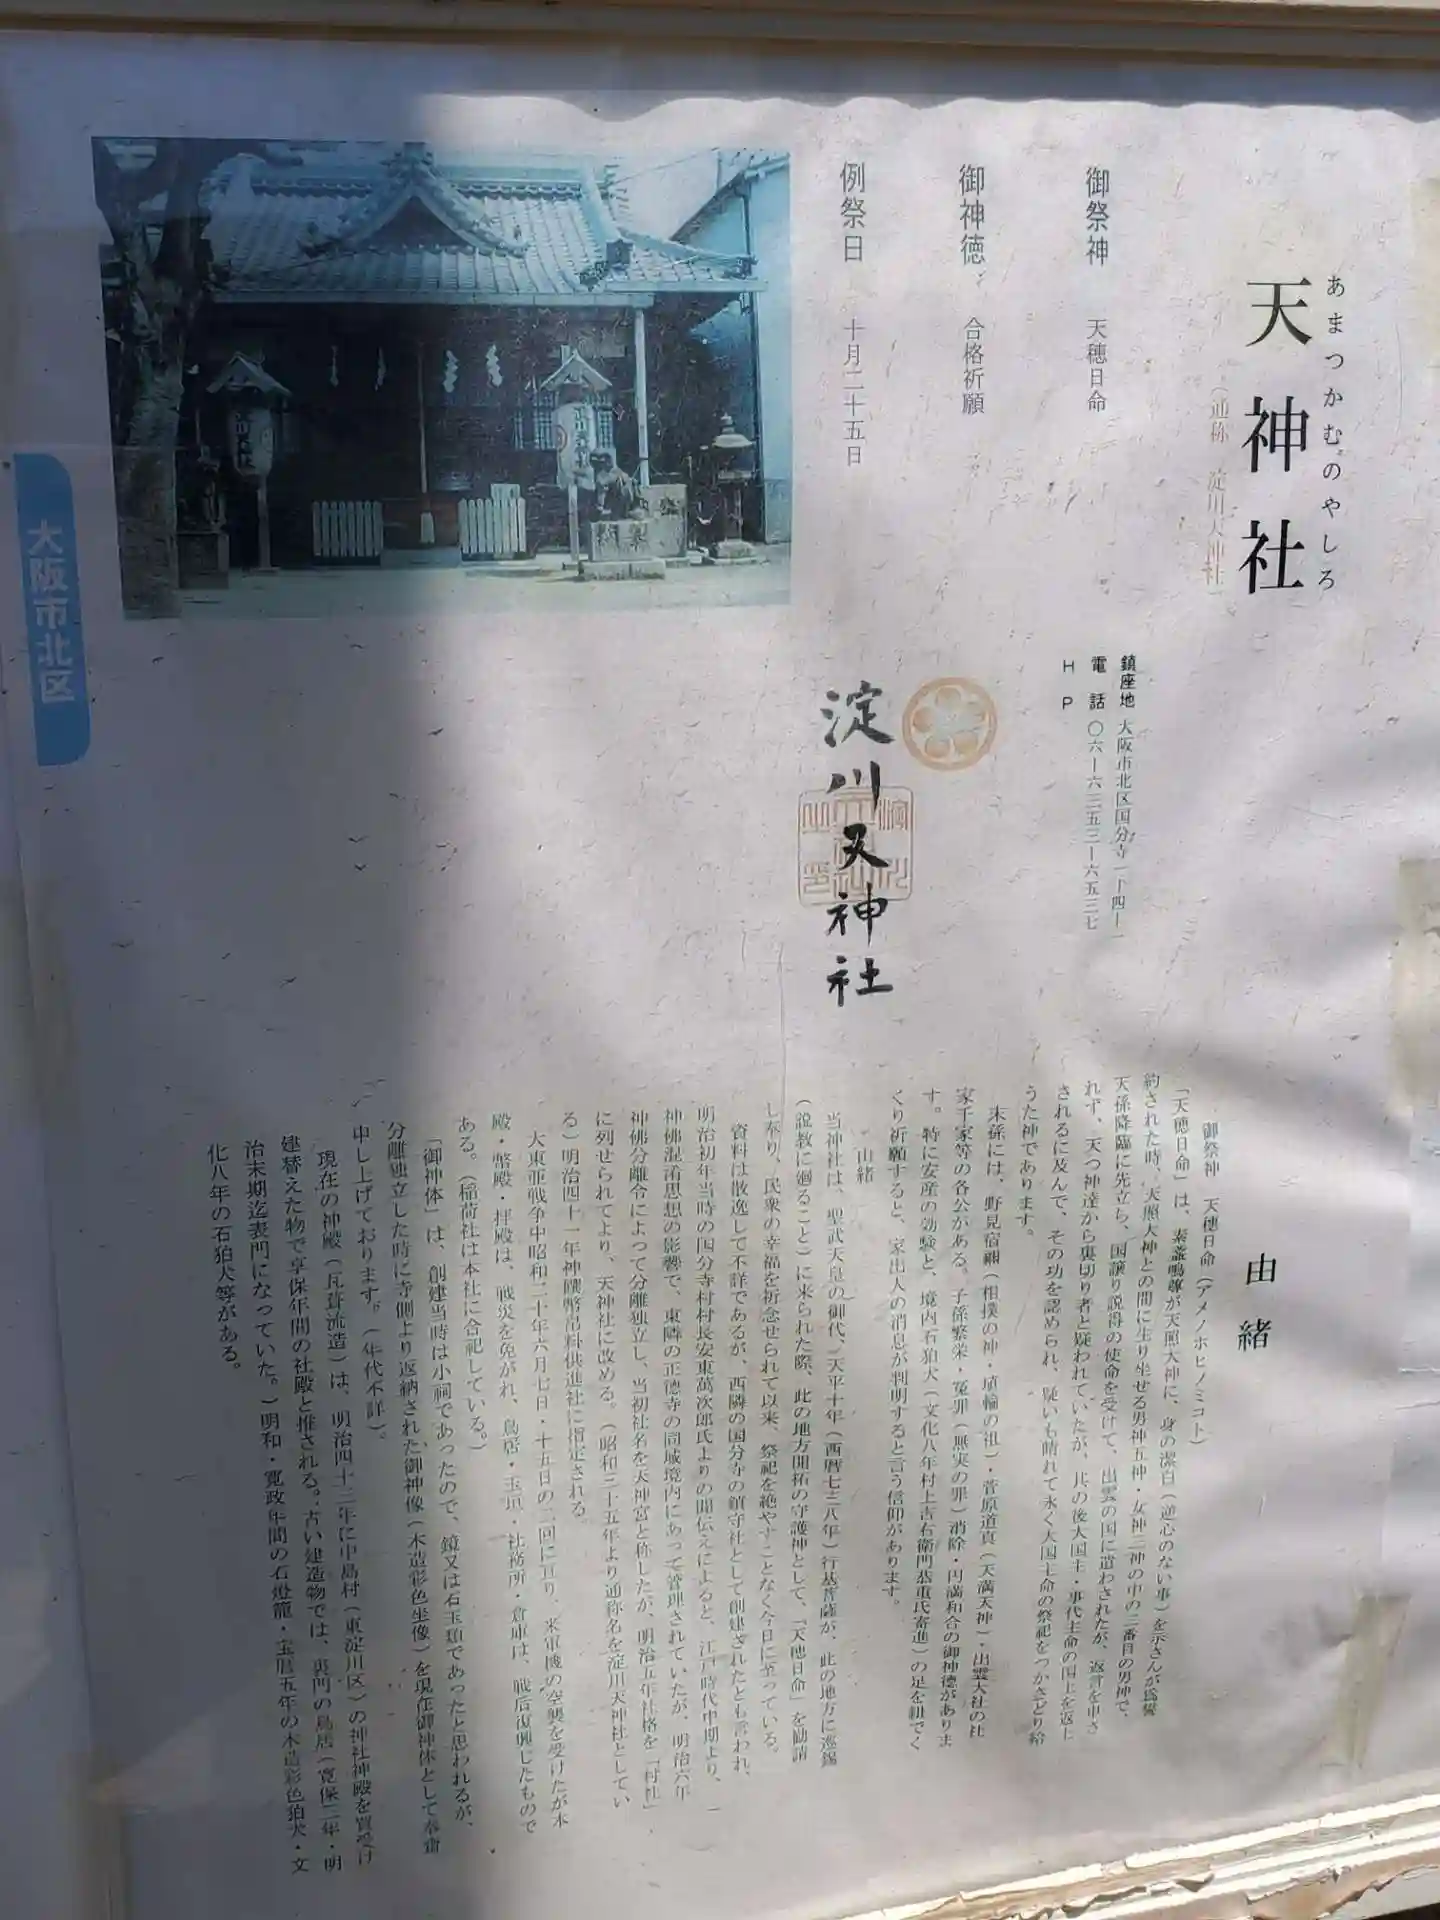 あまつかむのやしろ
天神社
（通称　淀川天神社）
御祭神　天穂日命
御神徳　合格祈願
例祭日　十月二十五日
鎮座地　大阪市北区国分寺一ー四ー一
電話　〇六ー六三五三ー六五三七
HP
淀川天神社
大阪市北区
由緒
御祭神　天穂日命（アメノホヒノミコト）
「天穂日命」は、素盞嗚尊が天照大神に、身の潔白（逆心のない事）を示さんが為誓
約された時、天照大神との間に生り坐せる男神五神・女神三神の中の二番目の男神で、
天孫降臨に先立ち、国譲り説得の使命を受けて、出雲の国に遣わされたが、返言を申さ
れず、天つ神達から裏切り者と疑われていたが、其の後大国主・事代主命の国土を返上
されるに及んで、その功を認められ、疑いも晴れて永く大国主命の祭祀をつかさどり給
うた神であります。
末孫には、野見宿禰（相撲の神・埴輪の祖）・菅原道真（天満天神）・出雲大社の社
家千家等の各公がある。子孫繁栄・冤罪（無実の罪）消除・円満和合の御神徳がありま
す。特に安産の効験と、境内石狛犬（文化八年村上吉右衛門恭重氏寄進）の足を紐でく
くり祈願すると、家出人の消息が判明すると言う信仰があります。
由緒
当神社は、聖武天皇の御代、天平十年（西暦七三八年）行基菩薩が、此の地方に巡錫
（説教に廻ること）に来られた際、此の地方開拓の守護神として、「天穂日命」を勧請
し奉り、民衆の幸福を祈念せられて以来、祭祀を絶やすことなく今日に至っている。
資料は散逸して不詳であるが、西隣の国分寺の鎮守社として創建されたとも言われ、
明治初年当時の国分寺村村長安東萬次郎氏よりの聞伝えによると、江戸時代中期より、
神佛混淆思想の影響で、東隣の正徳寺の同域境内にあって管理されていたが、明治六年
神佛分離令によって分離独立し、当初社名を天神宮と称したが、明治五年社格を「村社」
に列せられてより、天神社に改める。（昭和三十五年より通称名を淀川天神社としてい
る）明治四十一年神饌幣帛料供進社に指定される。
大東亜戦争中昭和二十年六月七日・十五日の二回に亘り、米軍機の空襲を受けたが本
殿・幣殿・拝殿は、戦災を免がれ、鳥居・玉垣・社務所・倉庫は、戦后復興したもので
ある。（稲荷社は本社に合祀している。）
「御神体」は、創建当時は小祠であったので、鏡又は石玉類であったと思われるが、
分離独立した時に寺側より返納された御神像（木造彩色坐像）を現在御神体として奉齋
申し上げております。（年代不詳）。
現在の神殿（瓦葺流造）は、明治四十三年に中島村（東淀川区）の神社神殿を買受け
建替えた物で享保年間の社殿と推される。古い建造物では、裏門の鳥居（寛保二年・明
治末期迄表門になっていた。）明和・寛政年間の石燈籠・宝暦五年の木造彩色狛犬・文
化八年の石狛犬等がある。